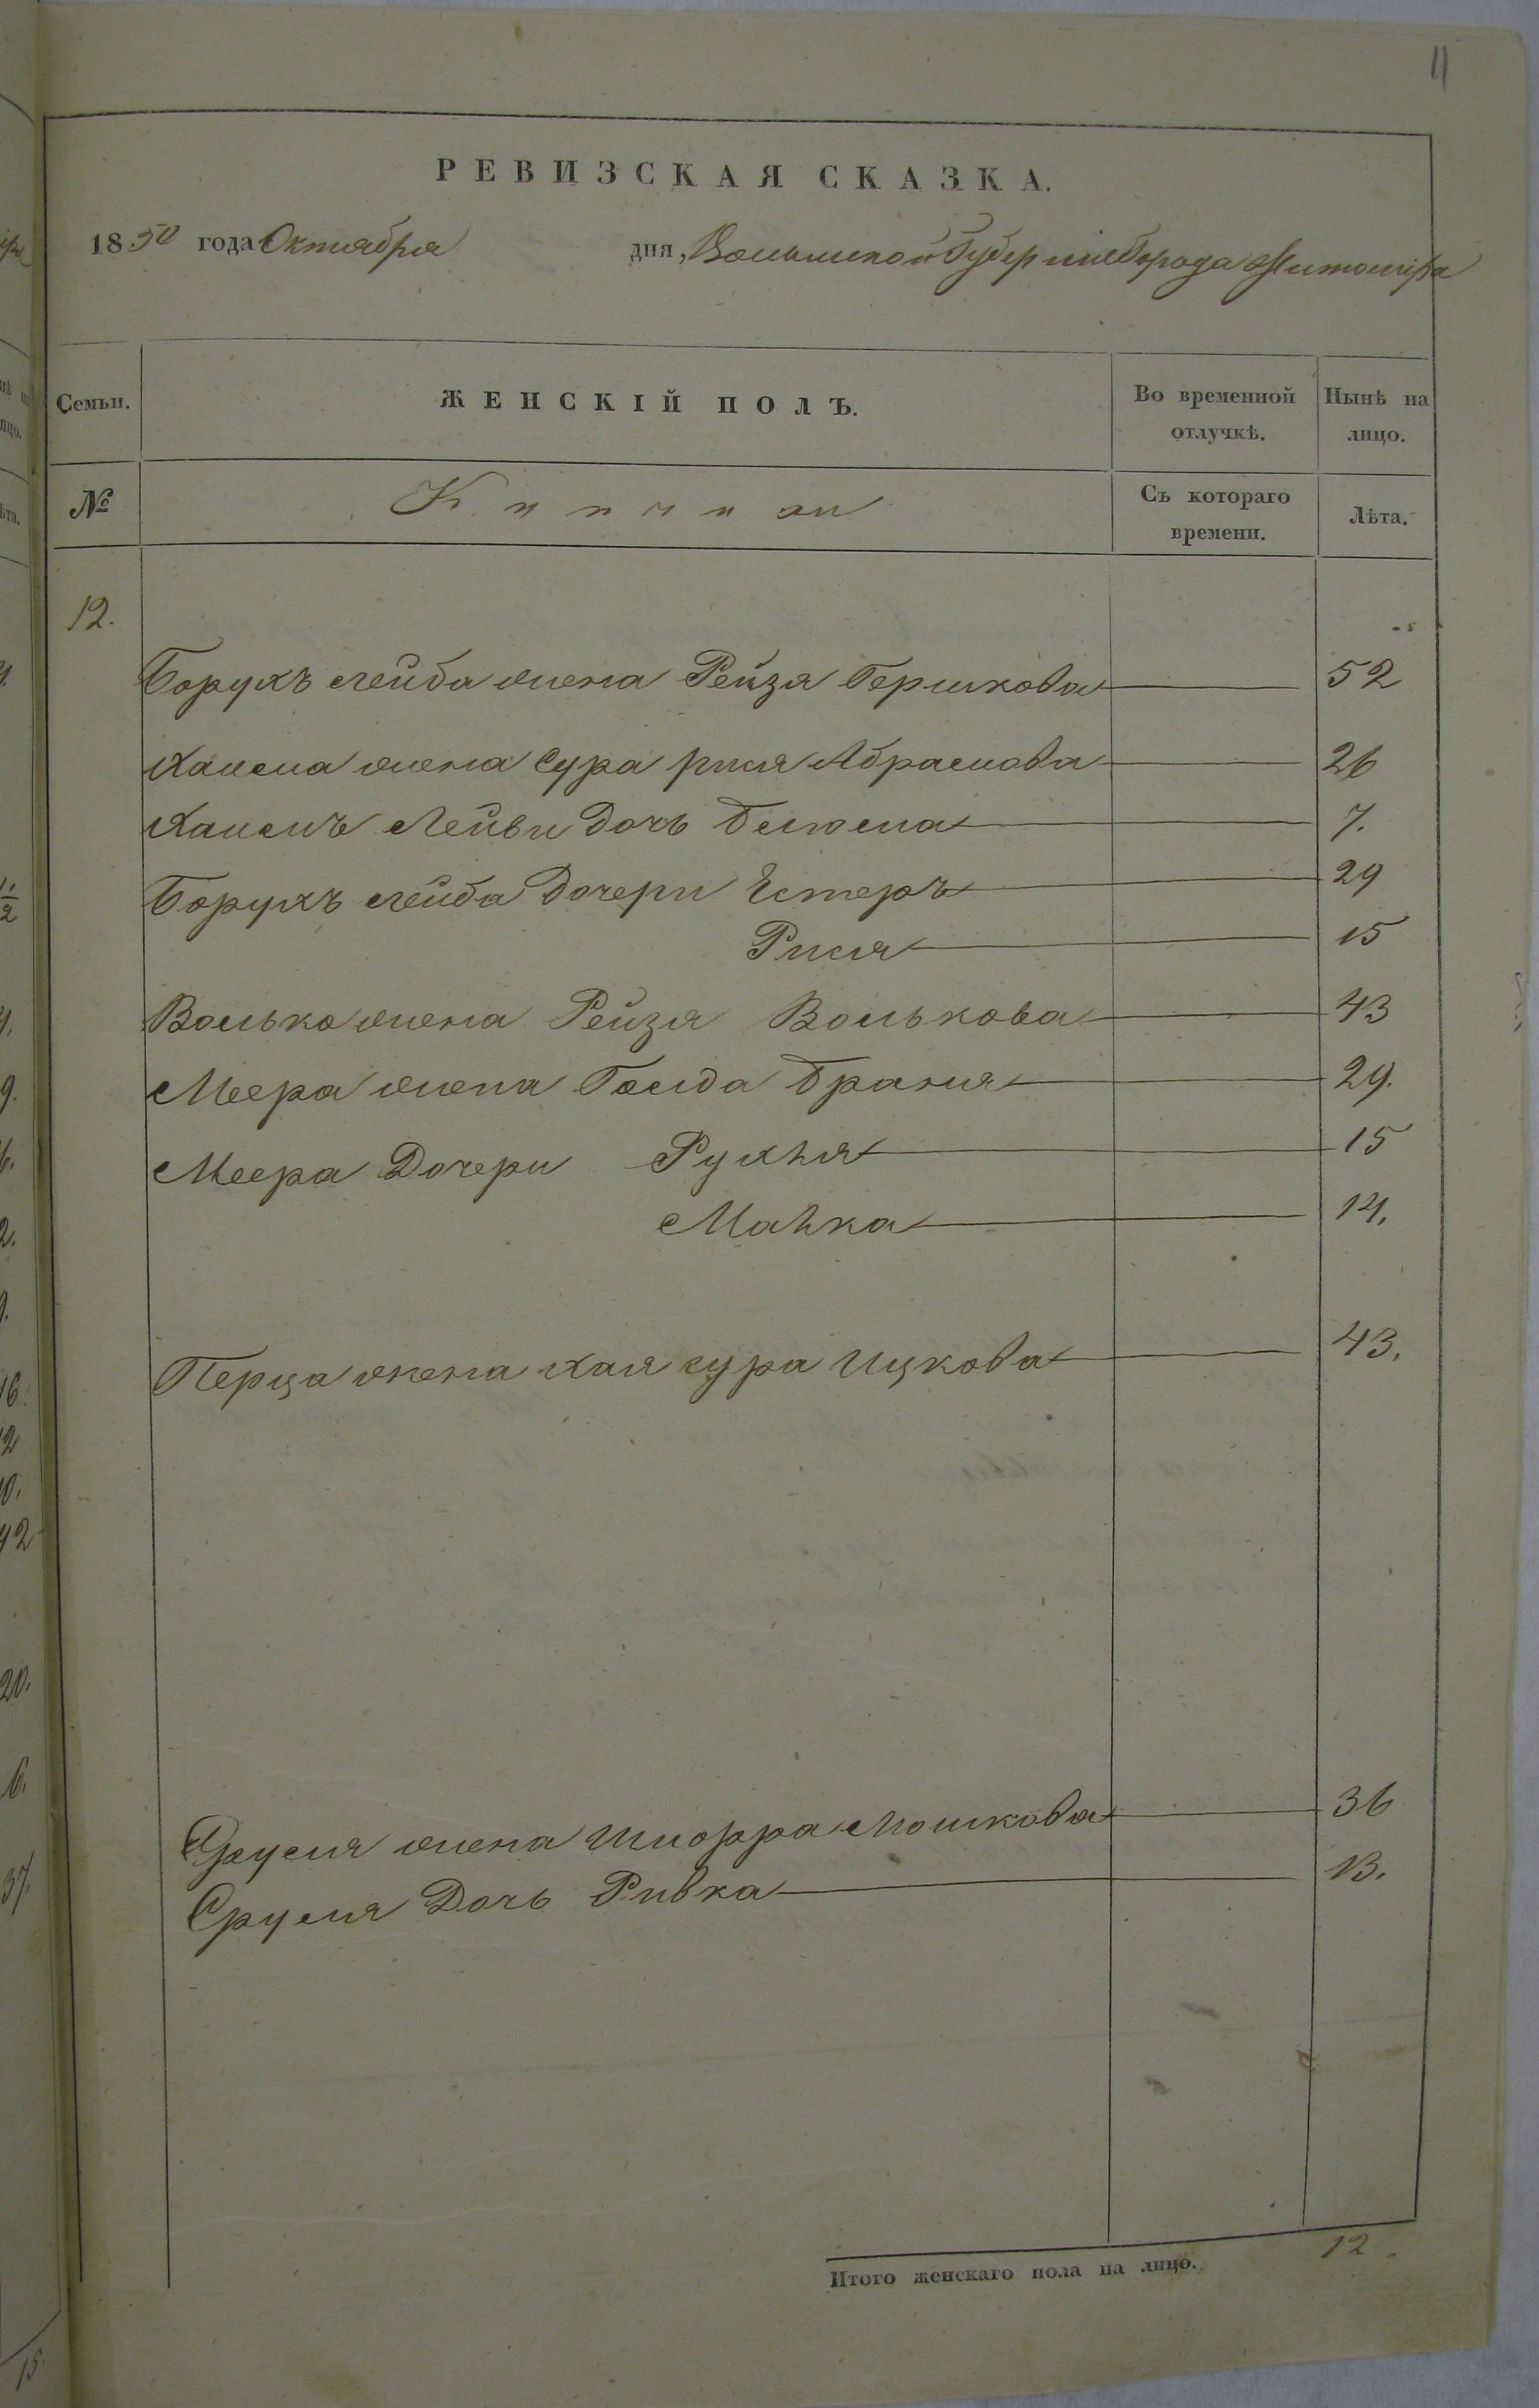 11
РЕВИЗСКАЯ СКАЗКА.
1850 года Октября дня, Волынской Губернiи Города Житомiра
Семьи.
ЖЕНСКIЙ ПОЛЪ.
Во временной отлучкѣ.
Нынѣ на лицо.
№
Съ котораго времени.
Лѣта.
12.
Борухъ Лейба жена Рейзя Гершкова 52
Хаима жена Сура рися Абрамова 26
Хаимъ Лейви Дочь 7.
Борухъ Лейба Дочери Естеръ 29
Рися 15
Волько жена Рейзя Волькова 43
Меера жена Голда Браня 29.
Меера Дочери Рухля 15
Малка 14.
Перца жена Хая сура Ицкова 43.
Сруля жена Шпора Мошкова 36
Сруля Дочь Ривка 13.
Итого женскаго пола на лицо. 12